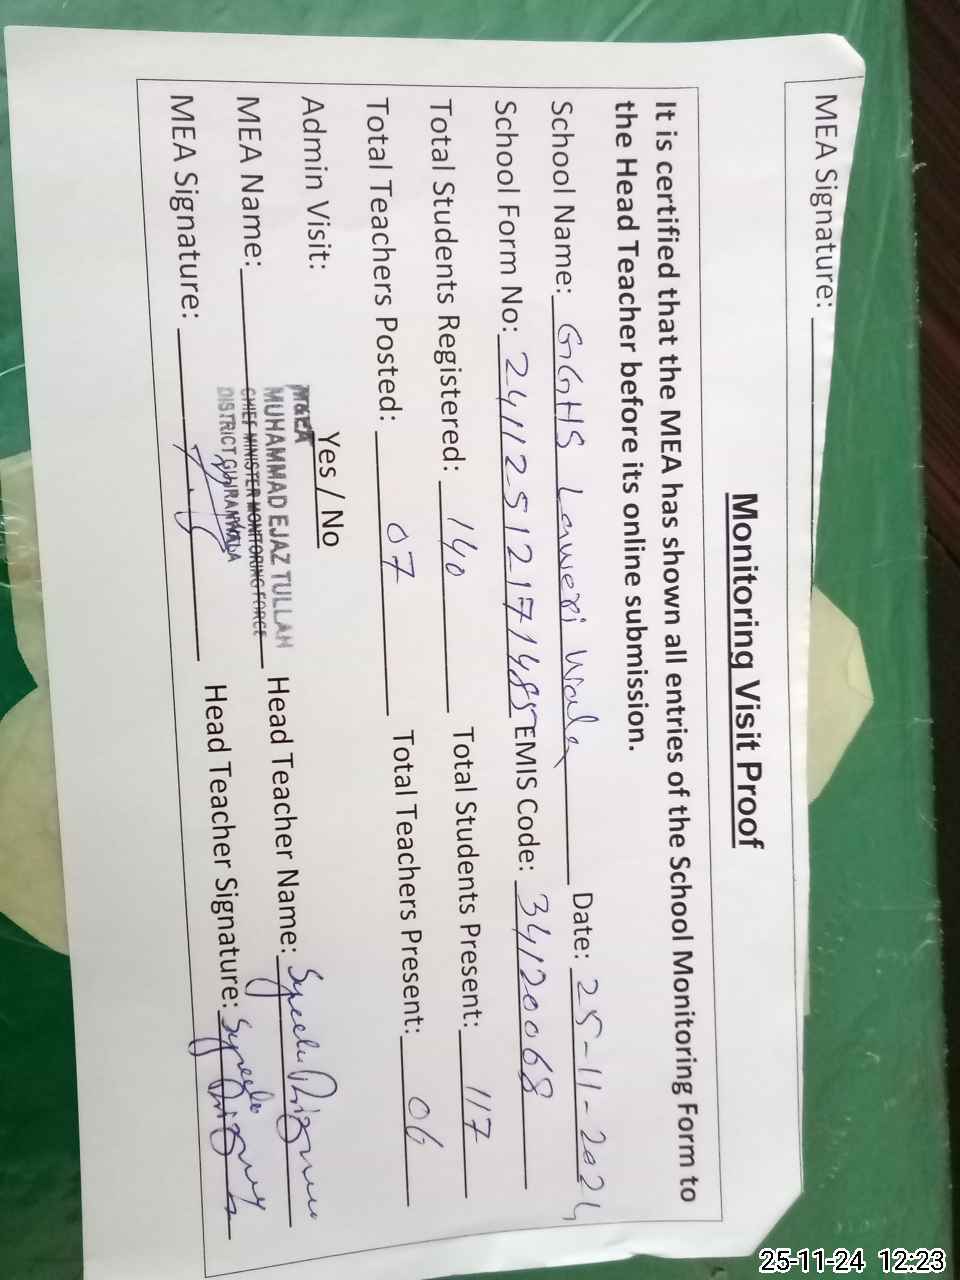 MEA Signature:
Monitoring Visit Proof
It is certified that the MEA has shown all entries of the School Monitoring Form to
the Head Teacher before its online submission.
School Name: GGHS Laweri Wala Date: 25-11-2024
School Form No: 24112512171485 EMIS Code: 34120068
Total Students Registered: 140 Total Students Present: 117
Total Teachers Posted: 07 Total Teachers Present: 06
Admin Visit: Yes / No
MEA
MUHAMMAD EJAZ TULLAH
MEA Name: CHIEF MINISTER MONITORING FORCE Head Teacher Name: Syeeda
DISTRICT GUJRANWALA
MEA Signature: Head Teacher Signature: Syeeda
25-11-24 12:23